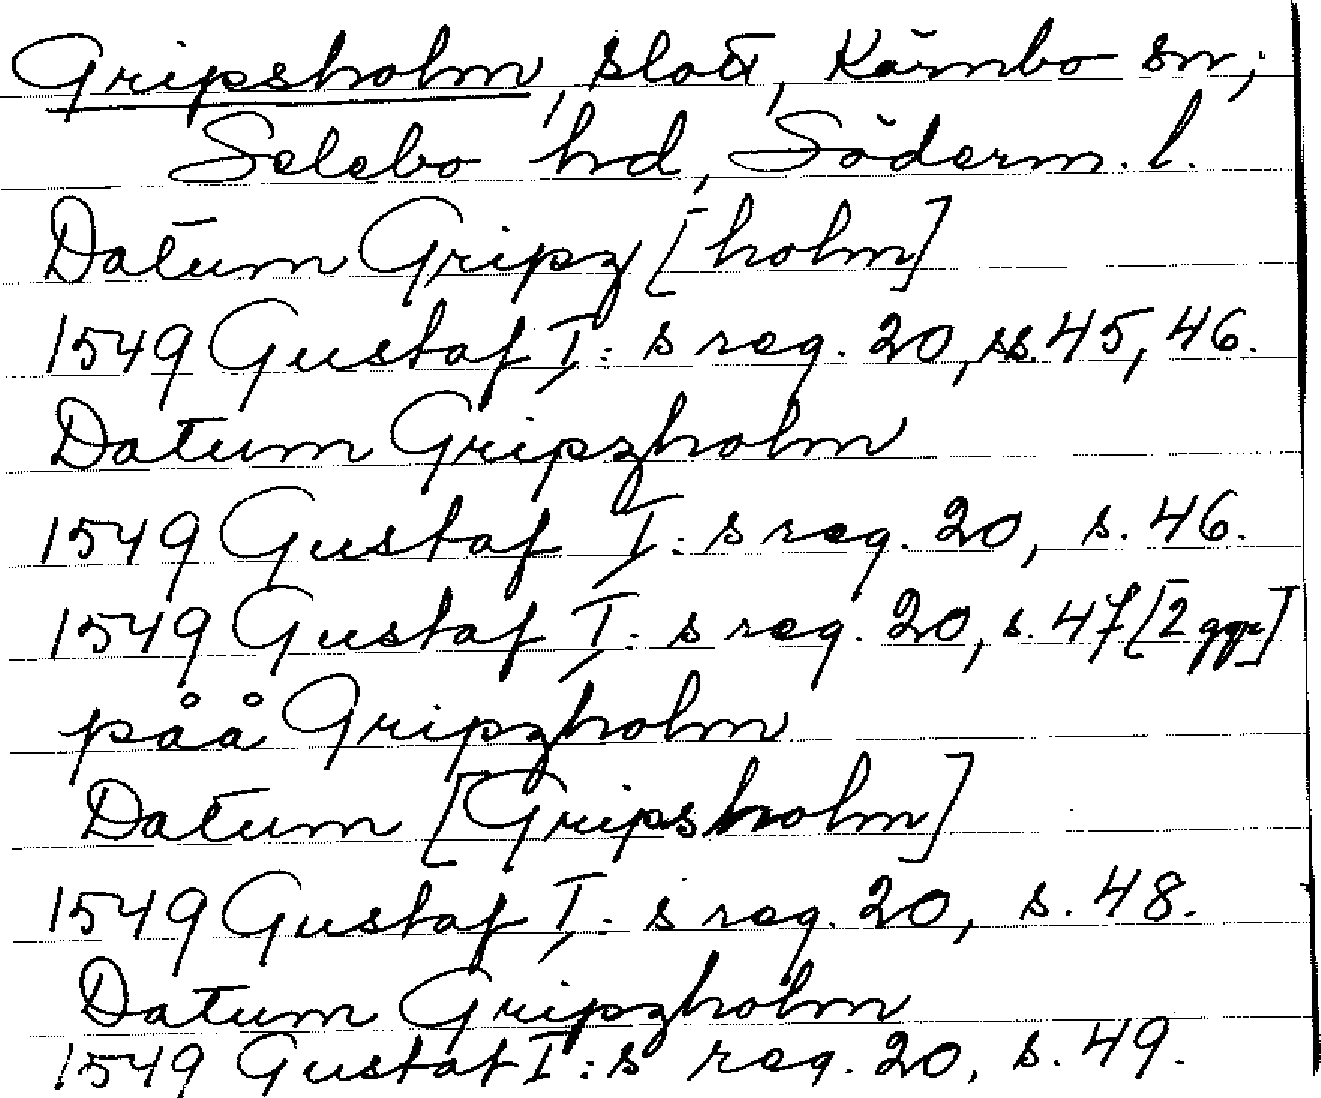 Gripsholm, slott, Kärnbo sn,
Selebo hd, Söderm. l.
Datum Gripz [holm]
1549 Gustaf I:s reg. 20, ss. 45, 46.
Datum Gripzholm
1549 Gustaf I:s reg. 20, s. 46.
1549 Gustaf I:s reg. 20, s. 47 [2 ggr]
påå Gripzholm
Datum [Gripsholm]
1549 Gustaf I:s reg. 20, s. 48.
Datum Gripzholm
1549 Gustaf I:s reg. 20, s. 49.